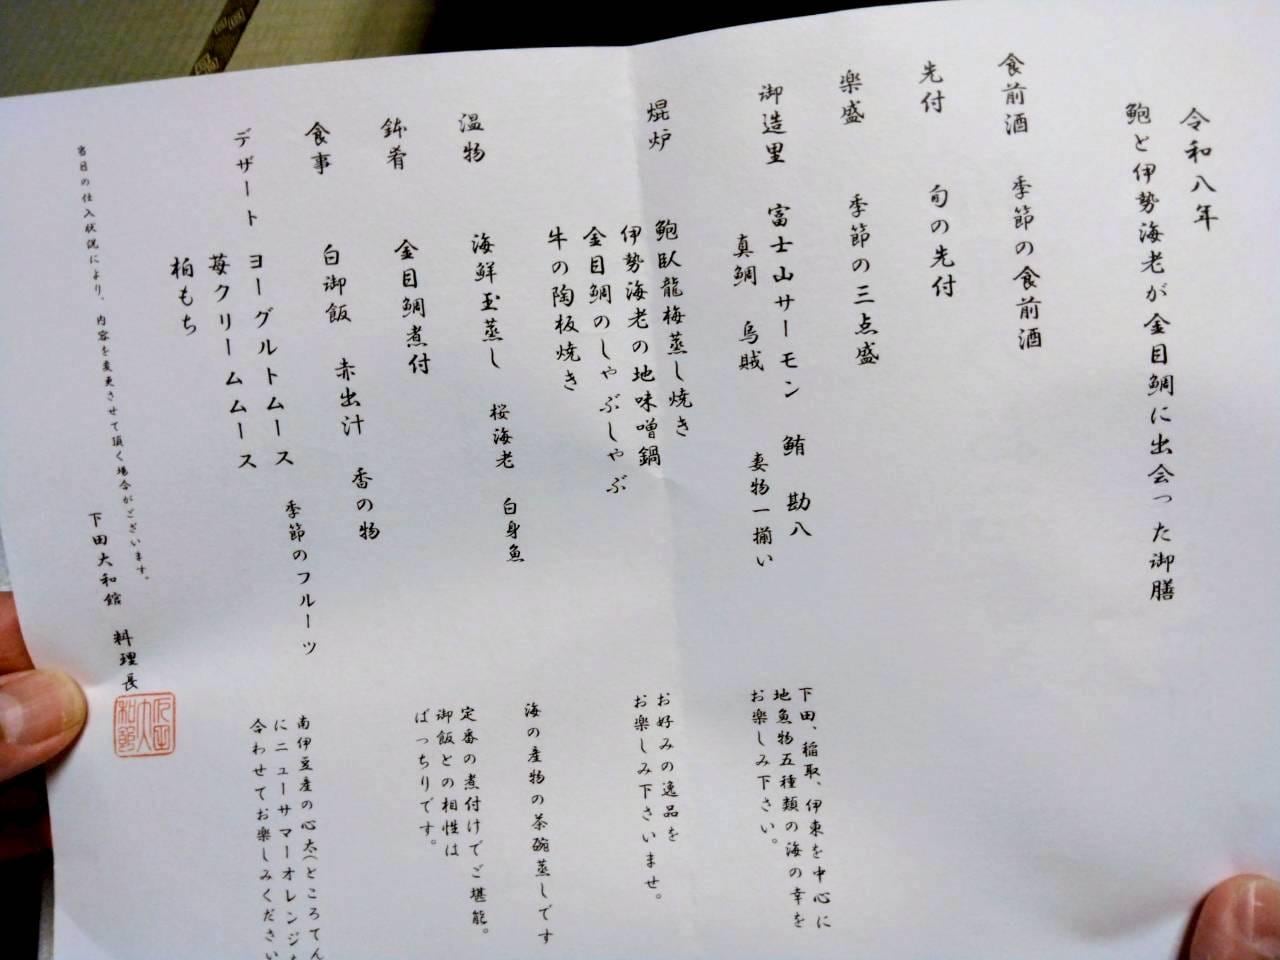 令和八年
鮑と伊勢海老が金目鯛に出会った御膳
食前酒 季節の食前酒
先付 旬の先付
楽盛 季節の三点盛
御造里 富士山サーモン 鮪 勘八
真鯛 烏賊 妻物一揃い
下田、稲取、伊東を中心に
地魚物五種類の海の幸を
お楽しみ下さい。
焜炉 鮑臥龍梅蒸し焼き
伊勢海老の地味噌鍋
金目鯛のしゃぶしゃぶ
牛の陶板焼き
お好みの逸品を
お楽しみ下さいませ。
温物 海鮮玉蒸し 桜海老 白身魚
海の産物の茶碗蒸しです
鉢肴 金目鯛煮付
定番の煮付けでご堪能。
御飯との相性は
ばっちりです。
食事 白御飯 赤出汁 香の物
デザート ヨーグルトムース 季節のフルーツ
苺クリームムース
柏もち
南伊豆産の心太(ところてん
にニューサマーオレンジ
合わせてお楽しみください
当日の仕入状況により、内容を変更させて頂く場合がございます。
下田大和館 料理長